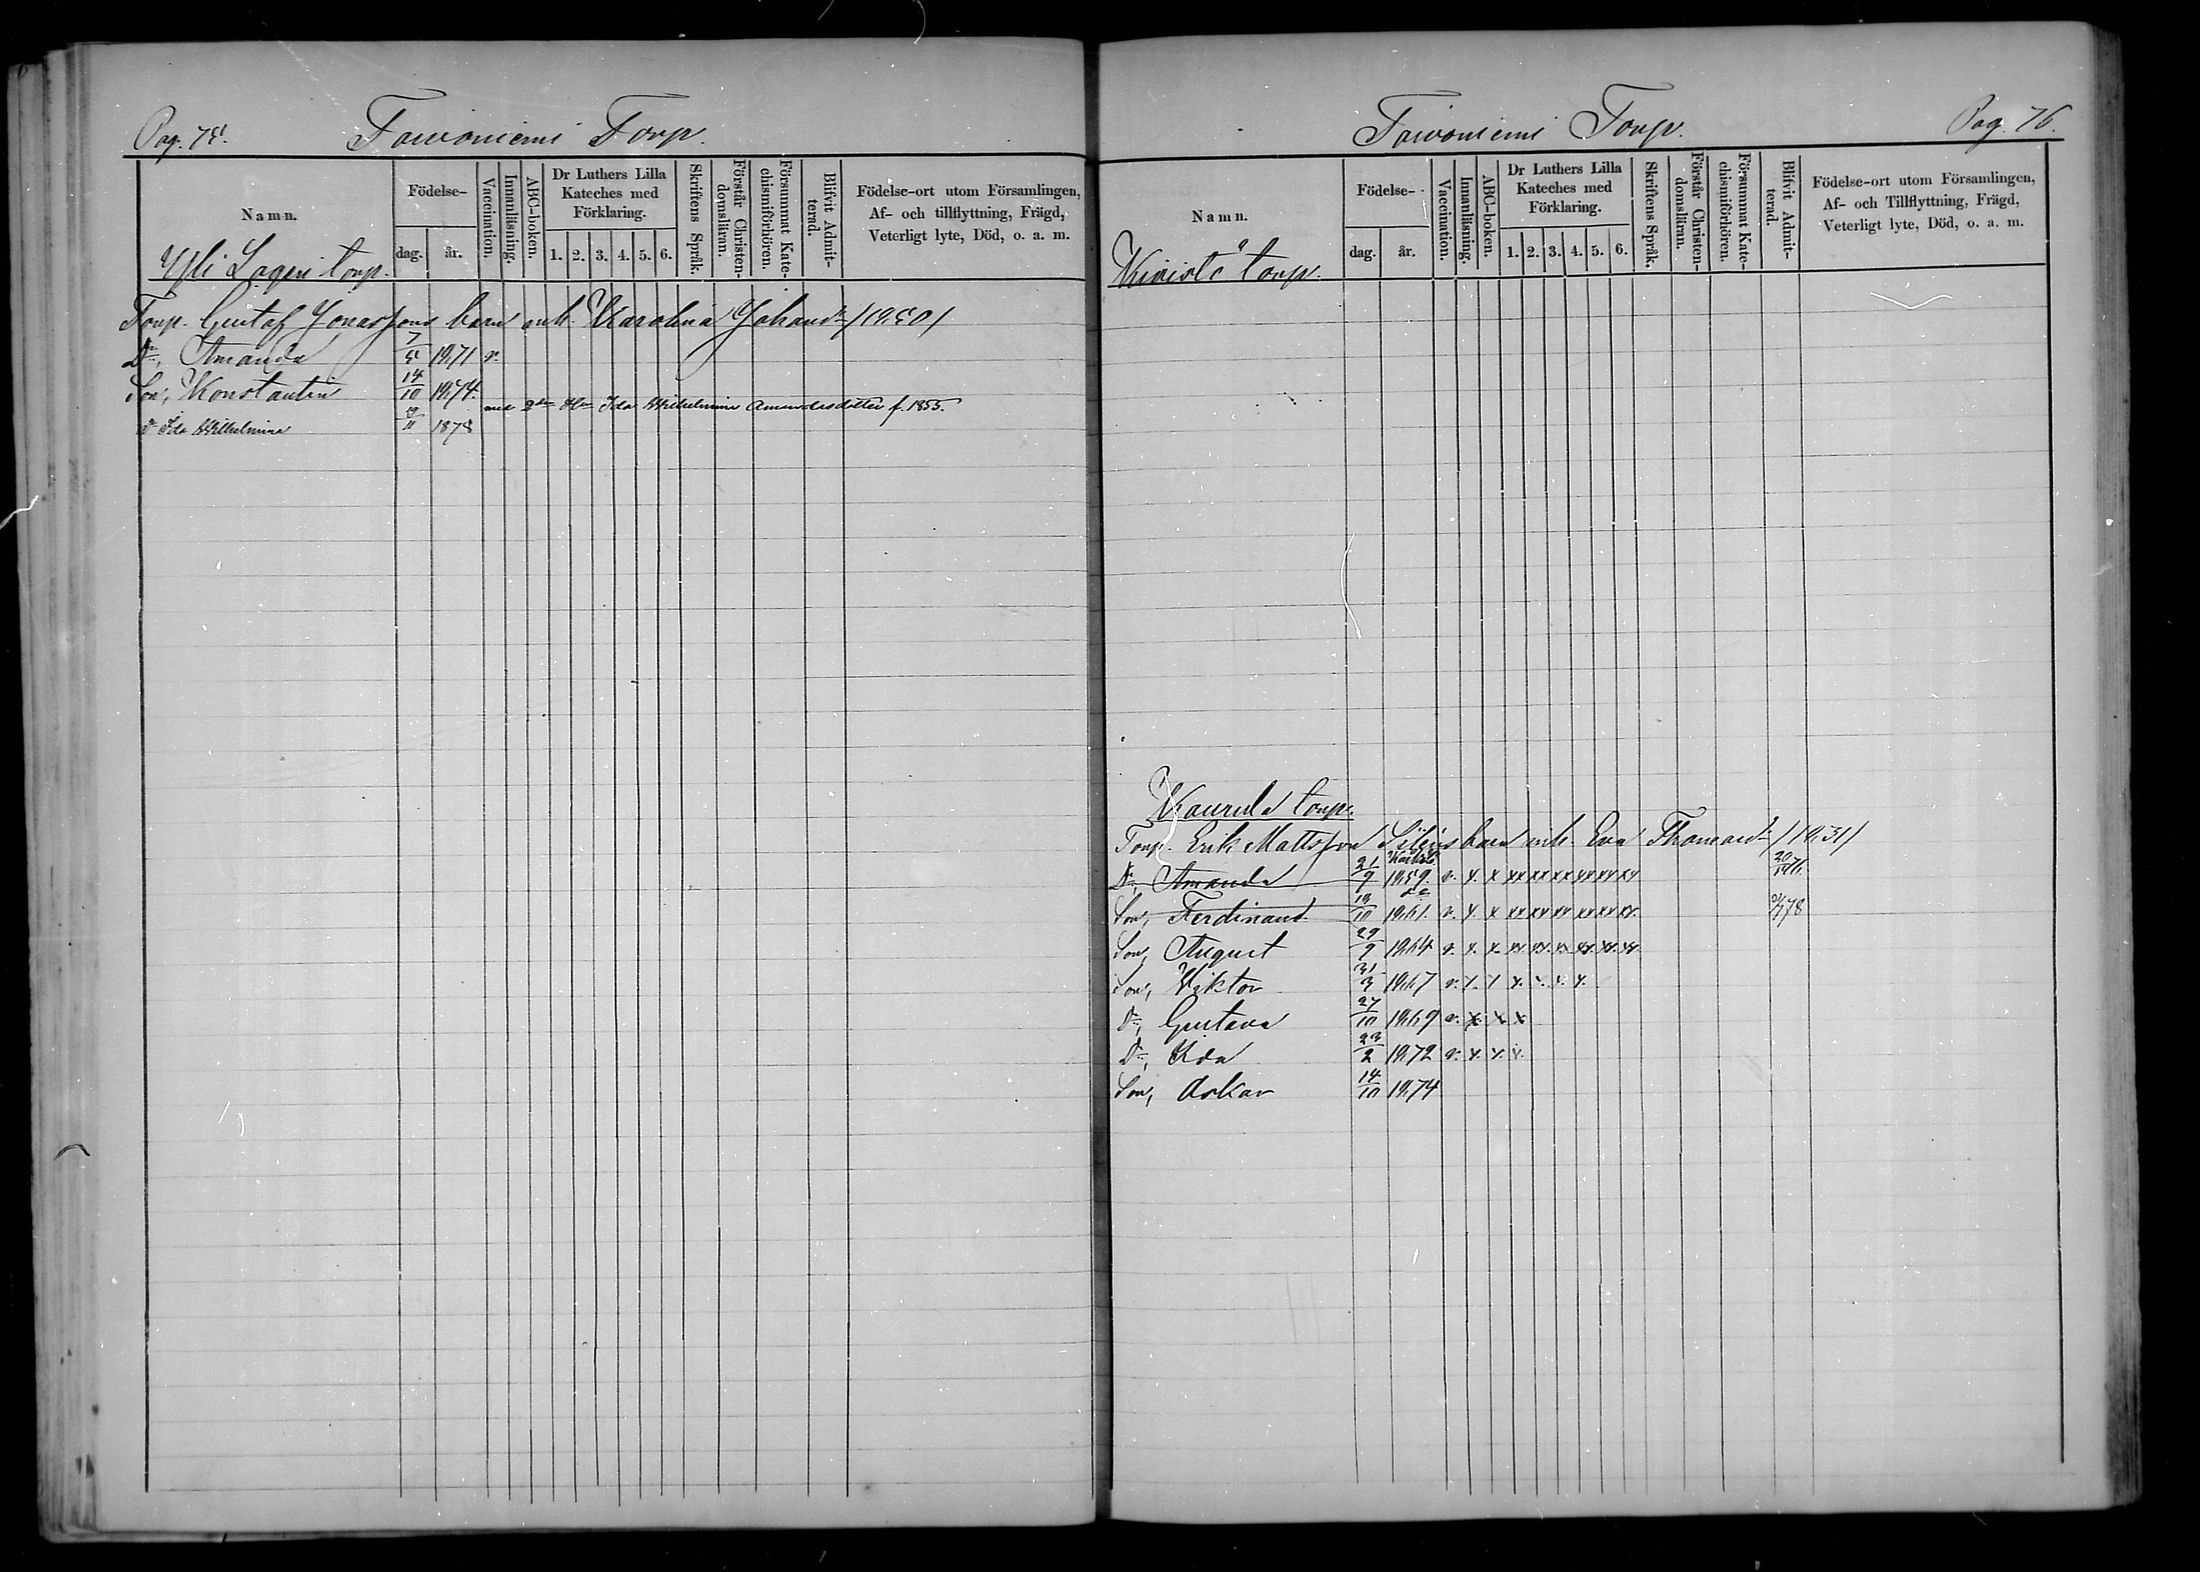 Pag. 75. Toivoniemi Torp.
Namn. Födelse- dag. år. Vaccination. Innanläsning. ABC-boken. Dr Luthers Lilla Kateches med Förklaring. 1. 2. 3. 4. 5. 6. Skriftens Språk. Förstår Christendomsläran. Försummat Katechismiförhören. Blifvit Admitterad. Födelse-ort utom Församlingen, Af- och tillflyttning, Frägd, Veterligt lyte, Död, o. a. m.
Yli torp.
Torp. Gustaf Jonassons barn m. h. Karolina Johansdr /1850/
Dr, Amanda 7/5 1871 v.
Son, Konstantin 14/10 1874.
med 2dra Hu Ida Wilhelmina Amandusdotter f. 1855.
Dr Ida Wilhelmina 1878
Toivoniemi Torp. Pag. 76.
Namn. Födelse- dag. år. Vaccination. Innanläsning. ABC-boken. Dr Luthers Lilla Kateches med Förklaring. 1. 2. 3. 4. 5. 6. Skriftens Språk. Förstår Christendomsläran. Försummat Katechismiförhören. Blifvit Admitterad. Födelse-ort utom Församlingen, Af- och Tillflyttning, Frägd, Veterligt lyte, Död, o. a. m.
Kivistö torp.
Kaurula torp.
Torp. Erik Mattsson Siléns barn m. h. Eva Thomasdr /1831/
Dr, Amanda 21/9 1859. v. x. x xx xx xx xx xx xx
Son, Ferdinand 18/10 1861. v. x. x xx xx xx xx xx xx 78
Son, August 29/9 1864 v. x. x. xx. xx. xx. xx. xx. xx
Son, Viktor 31/3 1867 v.
Dr, Gustava 27/10 1869 v. x. x. x
Dr, Ida 23/2 1872 v. x. x. x.
Son, Oskar 14/10 1874